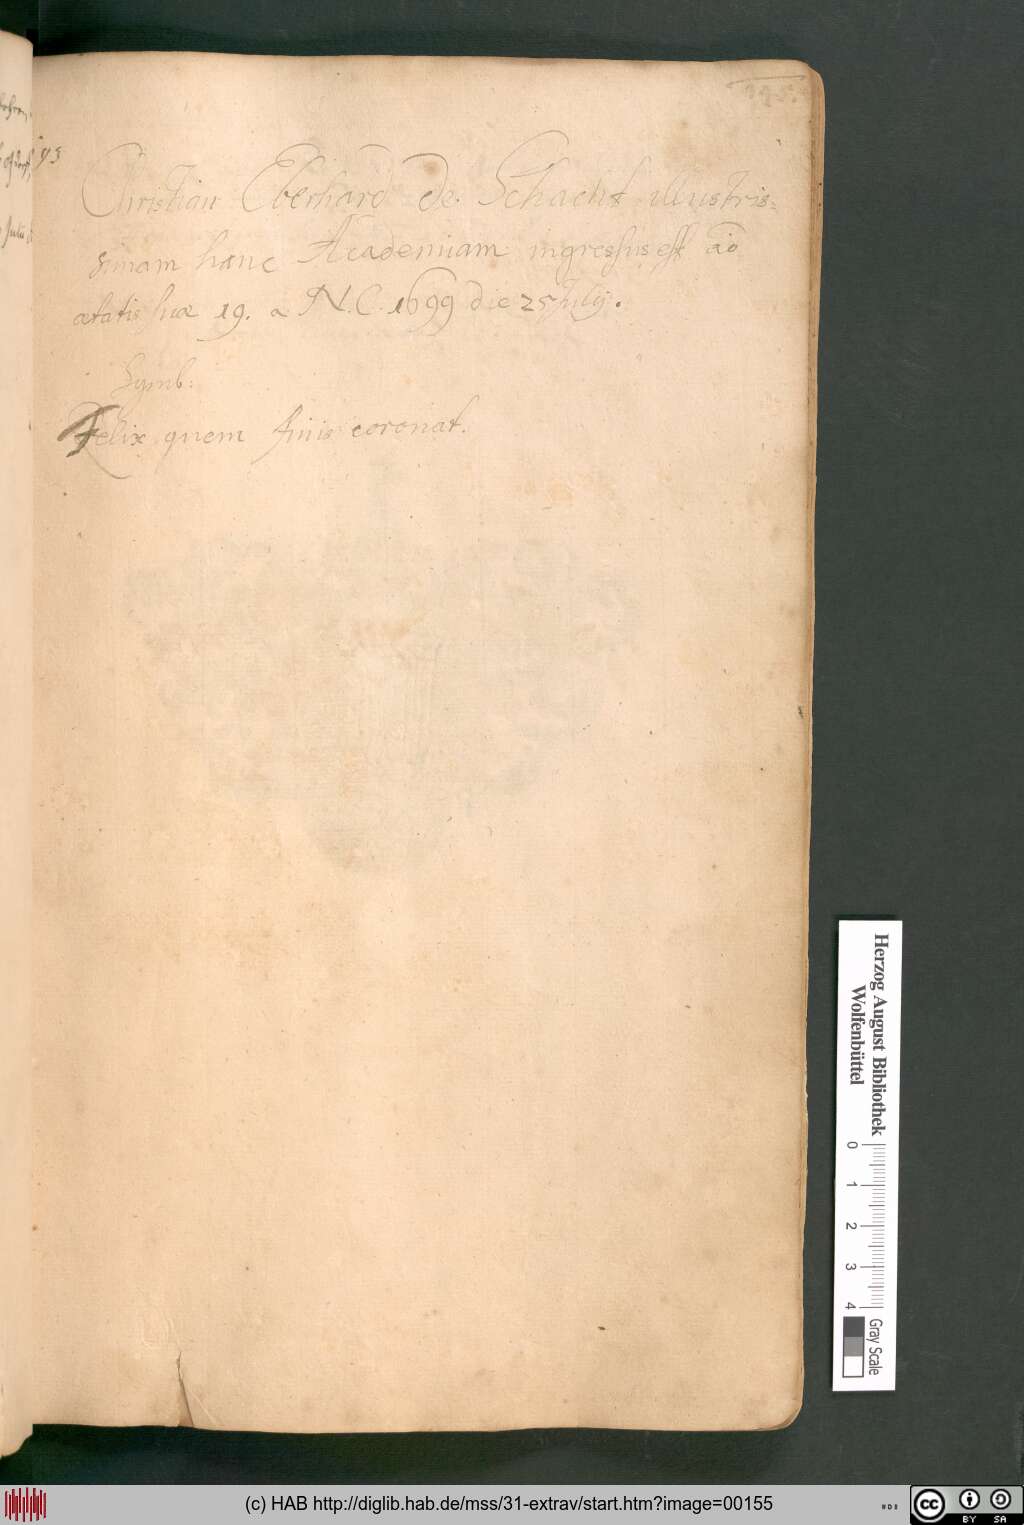 145.
Christian Eberhard de Schacht illustris=
simam hanc Academiam ingressus est aõ
ætatis suæ 19. a N.C. 1699 die 25 Julij.
Symb:
Felix quem finis coronat.
93
Julii
Herzog August Bibliothek
Wolfenbüttel
0 1 2 3 4
Gray Scale
(c) HAB http://diglib.hab.de/mss/31-extrav/start.htm?image=00155
cc BY SA